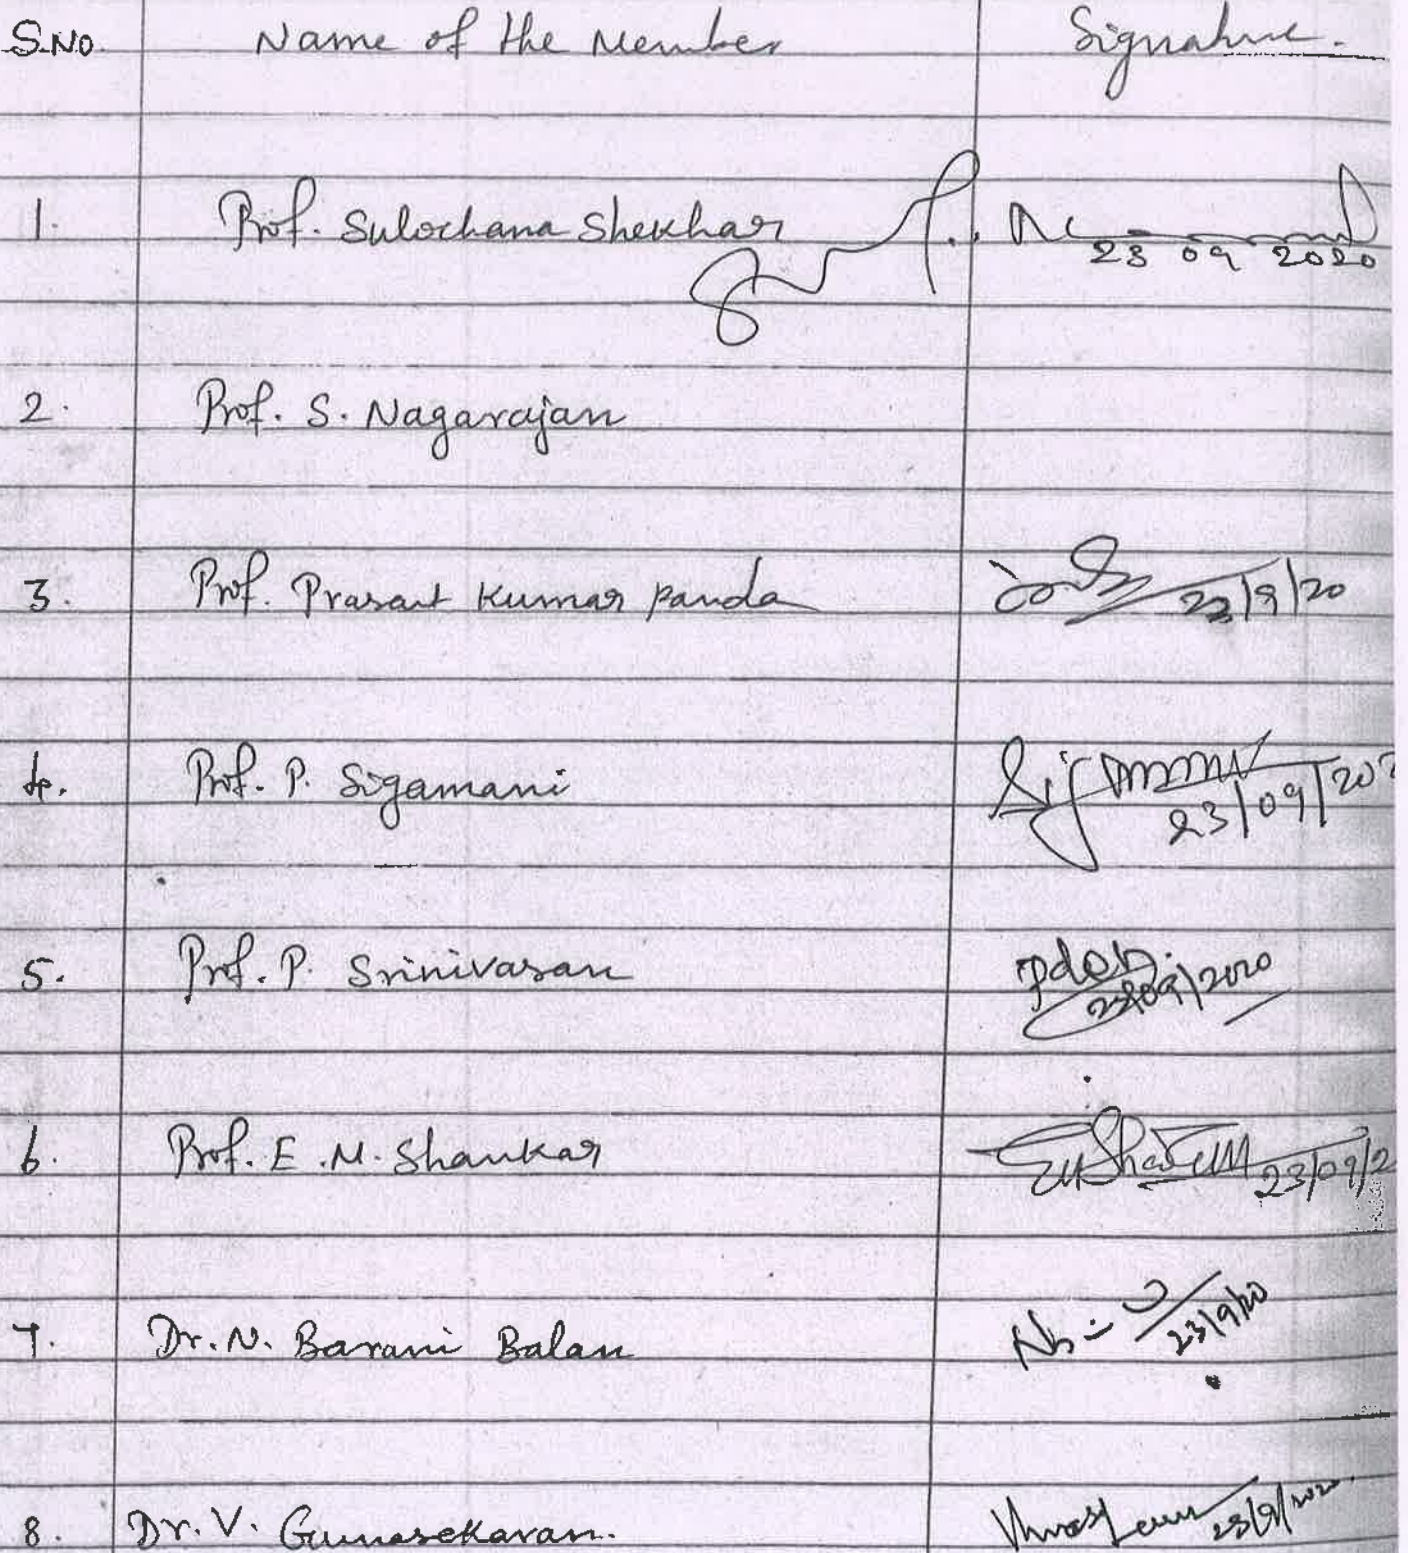 S.No. Name of the Member Signature.
1. Prof. Sulochana Shekhar
23 09 2020
2. Prof. S. Nagarajan
3. Prof. Prasant Kumar Panda 23/9/20
4. Prof. P. Sigamani
23/09/202
5. Prof. P. Srinivasan
23/09/2020
6. Prof. E.M. Shankar 23/09/2
7. Dr. N. Barani Balan 23/9/20
8. Dr. V. Gunasekaran. 23/9/2020